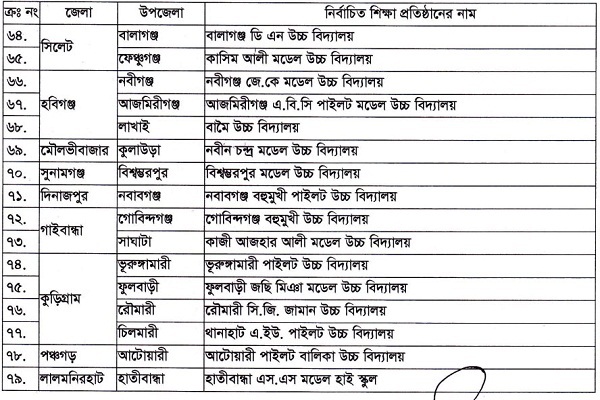 ক্রঃ নং জেলা উপজেলা নির্বাচিত শিক্ষা প্রতিষ্ঠানের নাম
৬৪. সিলেট বালাগঞ্জ বালাগঞ্জ ডি এন উচ্চ বিদ্যালয়
৬৫. ফেঞ্চুগঞ্জ কাসিম আলী মডেল উচ্চ বিদ্যালয়
৬৬. হবিগঞ্জ নবীগঞ্জ নবীগঞ্জ জে.কে মডেল উচ্চ বিদ্যালয়
৬৭. আজমিরীগঞ্জ আজমিরীগঞ্জ এ.বি.সি পাইলট মডেল উচ্চ বিদ্যালয়
৬৮. লাখাই বামৈ উচ্চ বিদ্যালয়
৬৯. মৌলভীবাজার কুলাউড়া নবীন চন্দ্র মডেল উচ্চ বিদ্যালয়
৭০. সুনামগঞ্জ বিশ্বম্ভরপুর বিশ্বম্ভরপুর মডেল উচ্চ বিদ্যালয়
৭১. দিনাজপুর নবাবগঞ্জ নবাবগঞ্জ বহুমুখী পাইলট উচ্চ বিদ্যালয়
৭২. গাইবান্ধা গোবিন্দগঞ্জ গোবিন্দগঞ্জ বহুমুখী উচ্চ বিদ্যালয়
৭৩. সাঘাটা কাজী আজহার আলী মডেল উচ্চ বিদ্যালয়
৭৪. কুড়িগ্রাম ভূরুঙ্গামারী ভূরুঙ্গামারী পাইলট উচ্চ বিদ্যালয়
৭৫. ফুলবাড়ী ফুলবাড়ী জছি মিঞা মডেল উচ্চ বিদ্যালয়
৭৬. রৌমারী রৌমারী সি.জি. জামান উচ্চ বিদ্যালয়
৭৭. চিলমারী থানাহাট এ.ইউ. পাইলট উচ্চ বিদ্যালয়
৭৮. পঞ্চগড় আটোয়ারী আটোয়ারী পাইলট বালিকা উচ্চ বিদ্যালয়
৭৯. লালমনিরহাট হাতীবান্ধা হাতীবান্ধা এস.এস মডেল হাই স্কুল